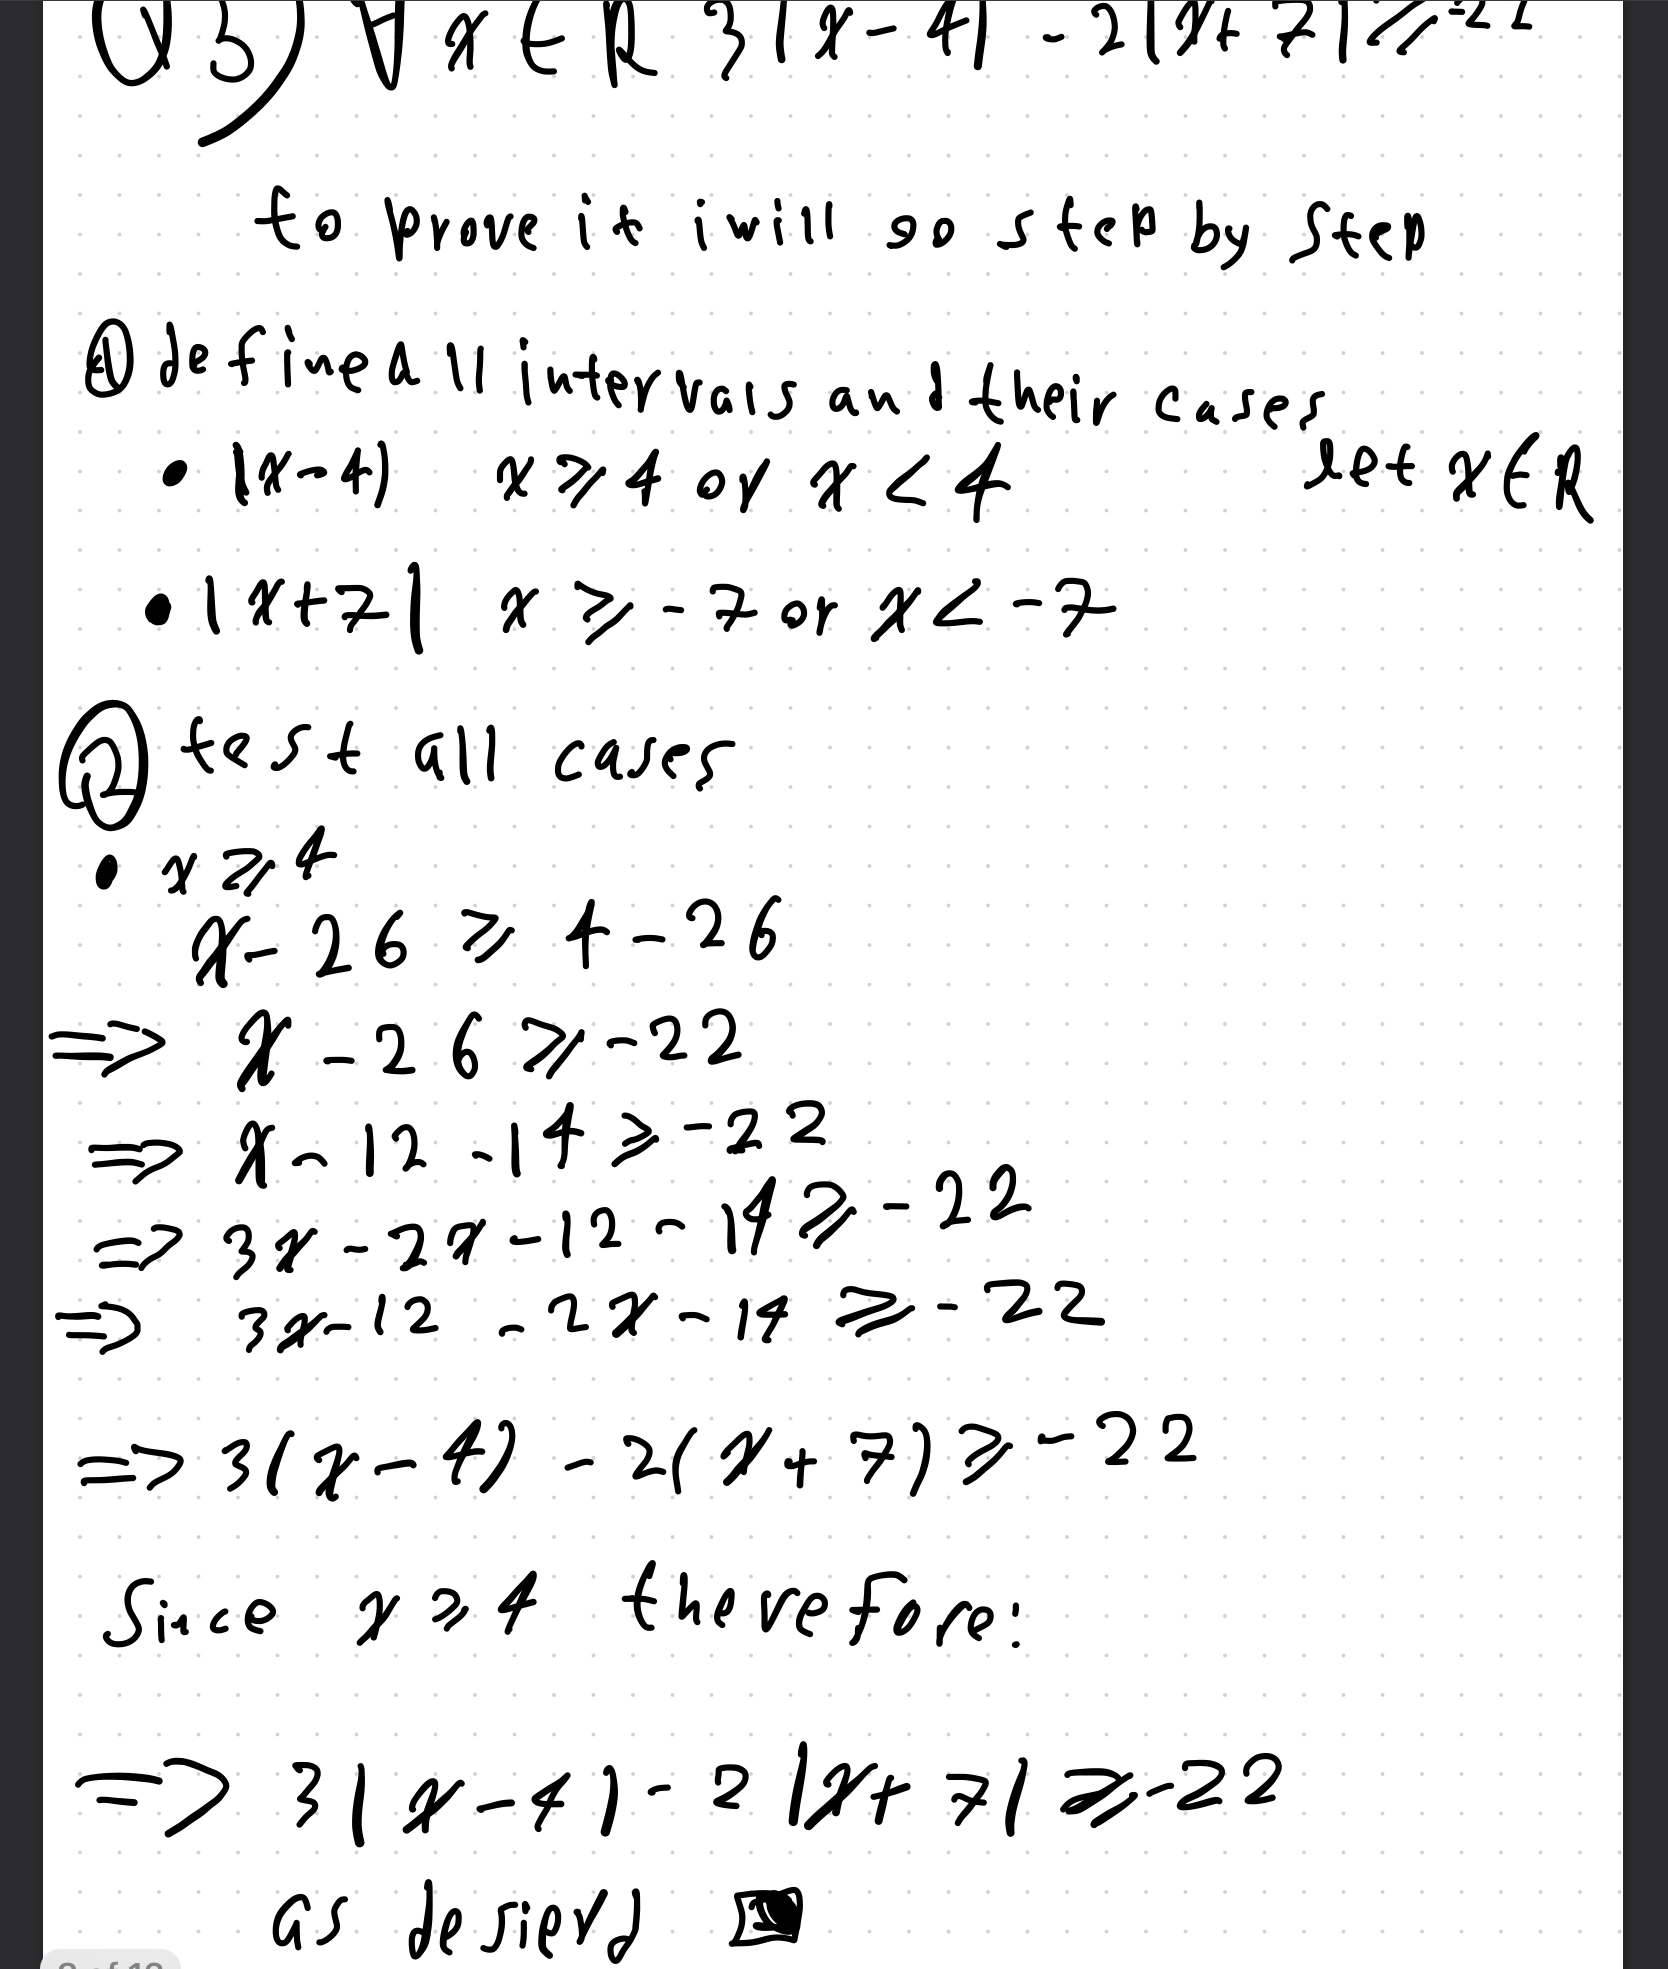 Q3) ∀ x ∈ R 3|x-4| - 2|x+7| ≥ -22
to prove it i will go step by step
① define all intervals and their cases
• |x-4| x ≥ 4 or x < 4 let x ∈ R
• |x+7| x ≥ -7 or x < -7
② test all cases
• x ≥ 4
x - 26 ≥ 4 - 26
=> x - 26 ≥ -22
=> x - 12 - 14 ≥ -22
=> 3x - 2x - 12 - 14 ≥ -22
=> 3x - 12 - 2x - 14 ≥ -22
=> 3(x-4) - 2(x+7) ≥ -22
Since x ≥ 4 therefore:
=> 3|x-4| - 2|x+7| ≥ -22
as desierd